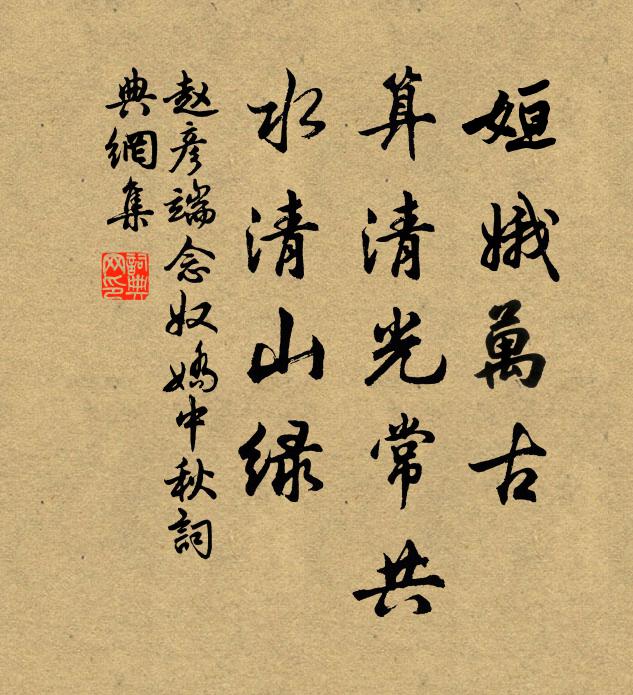 姮娥萬古
算清光常共
水清山緑
赵彦端念奴嬌中秋詞
典網集
詞典
网印